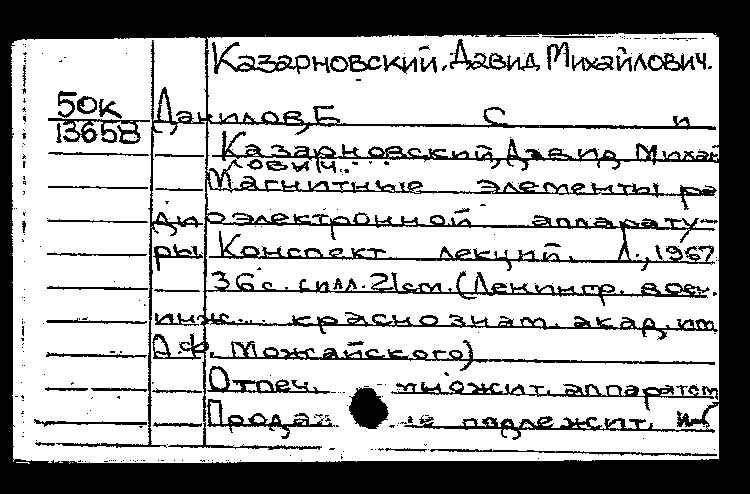 Казарновский, Давид Михайлович.
50к
13658
Данилов, Б С и
Казарновский, Давид Михай
лович.
Магнитные элементы ра
диоэлектронной аппарату-
ры Конспект лекций. Л., 1967
36с. с илл. 21см. (Ленингр. воен.
инж. краснознам. акад. им
А.Ф. Можайского)
Отпеч. множит. аппаратом
подлежит.